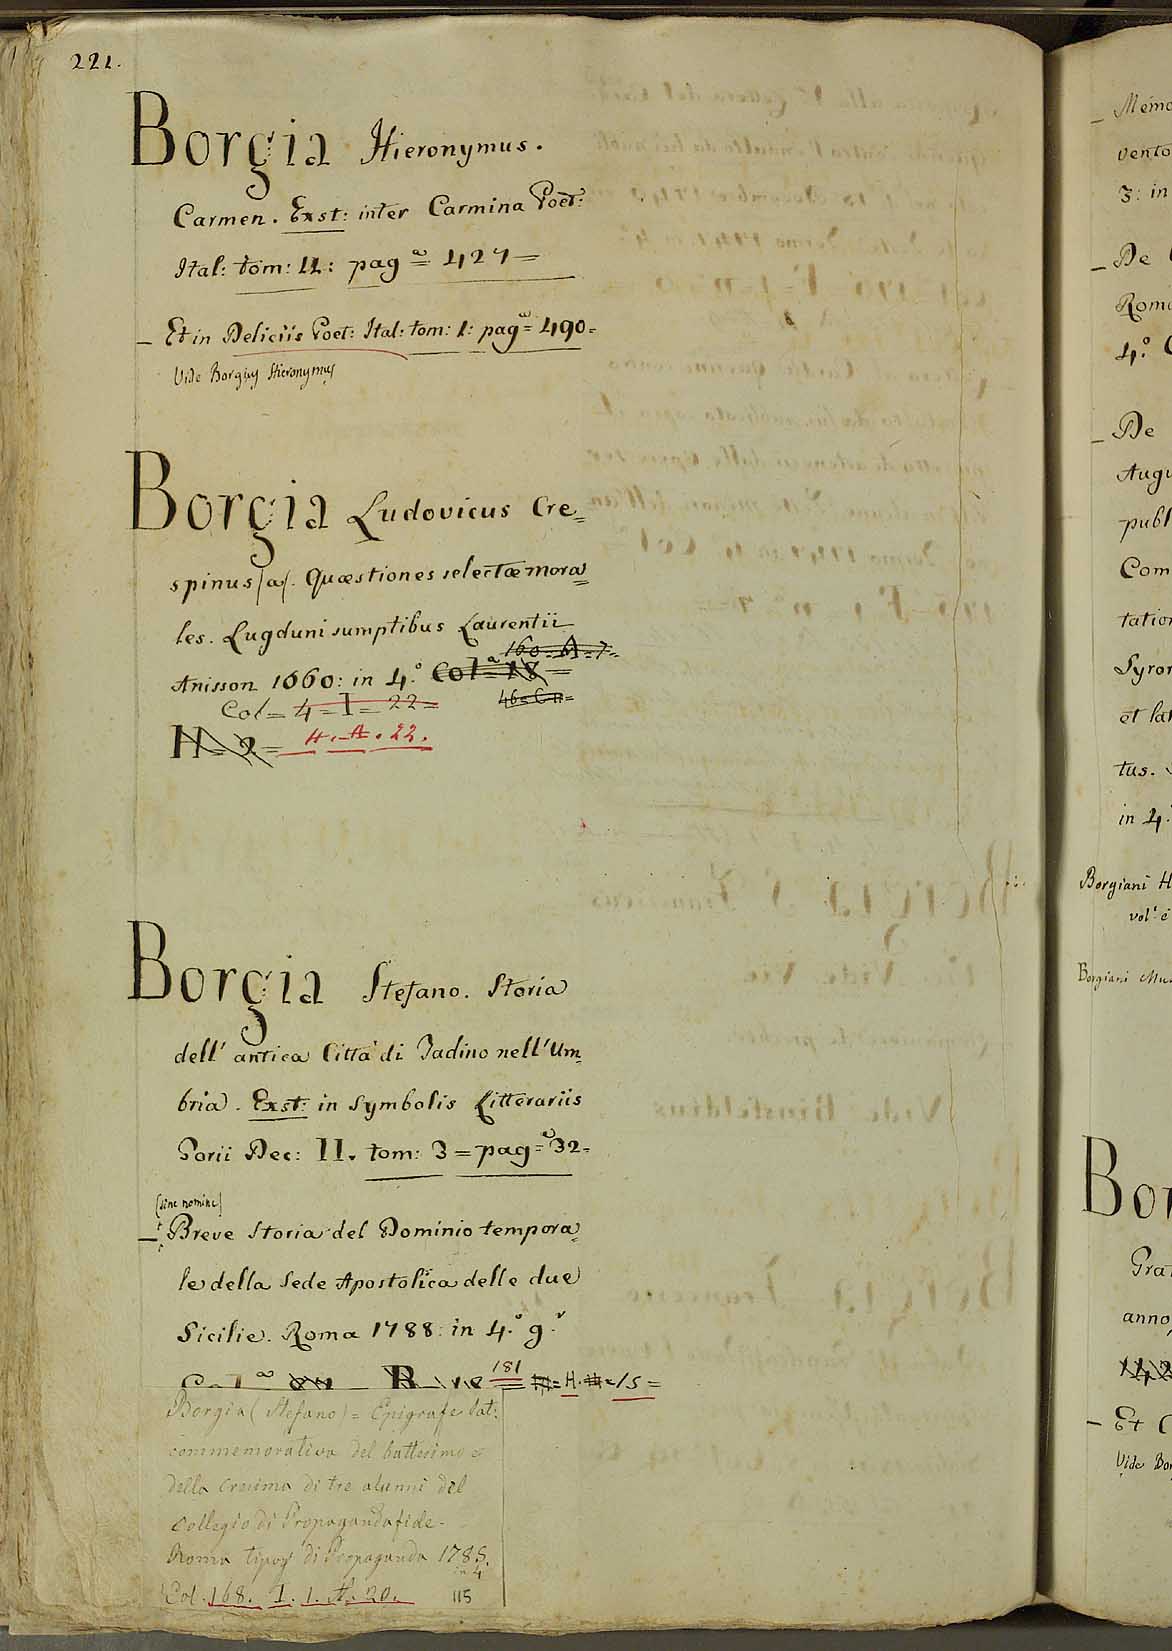 221.
Borgia Hieronymus.
Carmen. Exst: inter Carmina Poet:
Ital: tom: 11: pag.ª = 427 =
_ Et in Deliciis Poet: Ital: tom: 1: pag.ª = 490 =
Vide Borgius Hieronymus
Borgia Ludovicus Cre=
spinus (a). Quæstiones selectæ mora=
les. Lugduni sumptibus Laurentii
160. A. 7.
Anisson 1660: in 4.º Col.ª = 18 =
Col = 4 = I = 22 =
H = 2 = 4. A. 22.
Borgia Stefano. Storia
dell' antica Città di Tadino nell' Um=
bria. Exst: in Symbolis Litterariis
Gorii Dec: II. tom: 3 = pag.ª = 32 =
(sine nomine)
_ Breve Storia del Dominio tempora=
le della Sede Apostolica delle due
Sicilie. Roma 1788: in 4.º g.r
181 = H. = 15 =
Borgia (Stefano) = Epigrafe lat:
commemorativa del battesimo e
della cresima di tre alunni del
Collegio di Propaganda fide.
Roma tipog. di Propaganda 1785.
in 4
Col. 168. I. 1. A. 20. 115
_ Memo
vento
3: in
_ De
Roma
4.º
_ De
Augu
publ
Com
tation
Syror
et lat
tus.
in 4.
Borgiani H
vol.
Borgiani Mu
Bor
Gra
anno
_ Et
Vide Bor